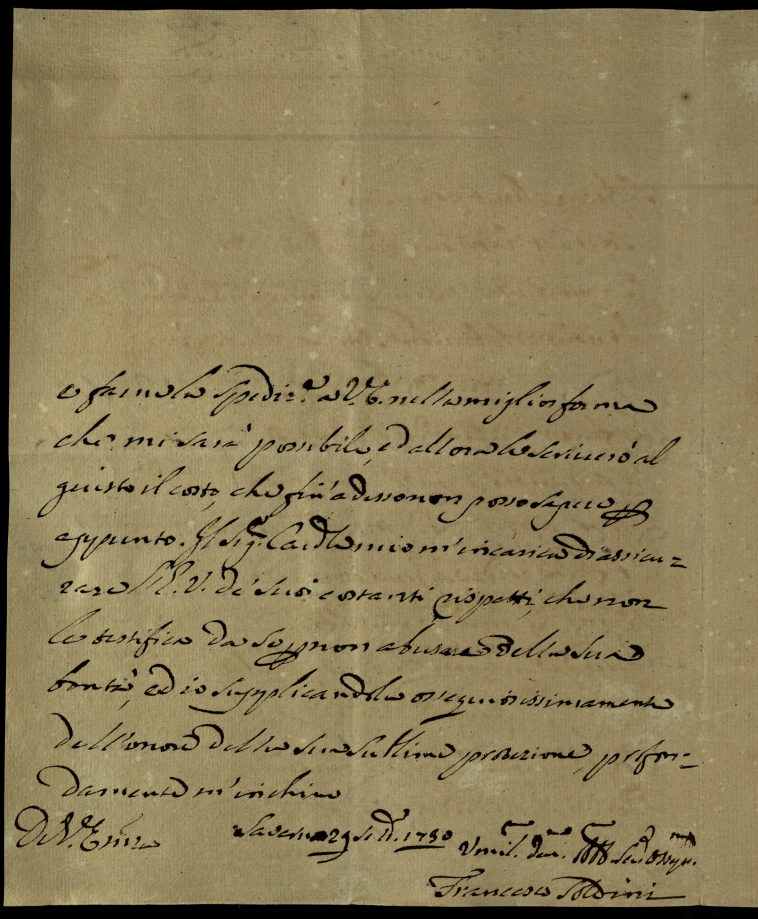 e farne la spediz.e a V. E. nella miglior forma
che mi sarà possibile, ed allora le scriverò al
giusto il costo, che fin'adesso non posso sapere p
appunto. Il Sig.r Cardle mio m'incarica d'assicu=
rare l'E. V. de' suoi costanti rispetti, che non
le testifica da se p non abusare della sua
bontà, ed io supplicandola ossequiosissimamente
dell'onore della sua sublime protezione, profon=
damente m'inchino
Di V. Emza
29 1780
Umil.
Francesco